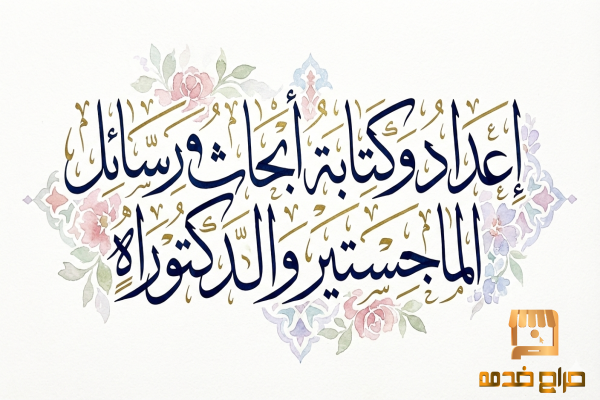 إعداد وكتابة أبحاث ورسائل
الماجستير والدكتوراه
حراج خدمه